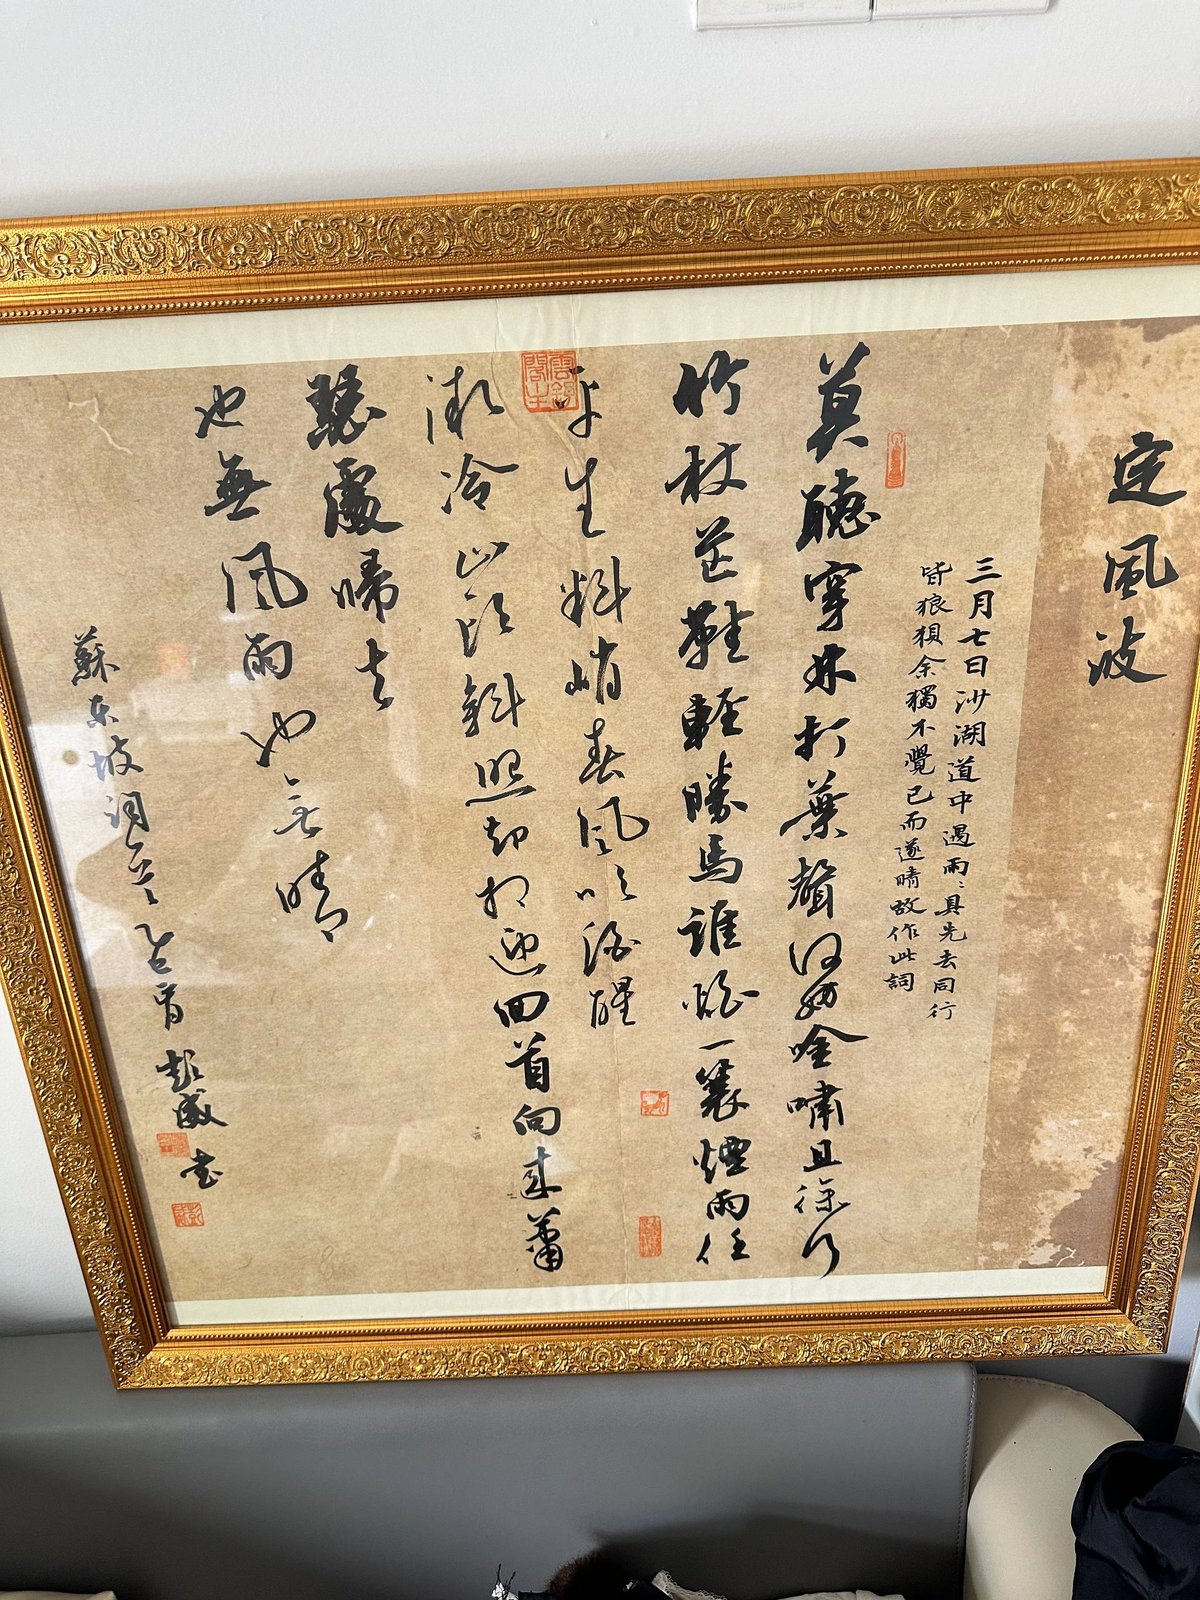 定風波
三月七日沙湖道中遇雨〻具先去同行
皆狼狽余獨不覺已而遂晴故作此詞
莫聽穿林打葉聲何妨吟嘯且徐行
竹杖芒鞋輕勝馬誰怕一蓑煙雨任
平生料峭春風吹酒醒
微冷山頭斜照却相迎回首向來蕭
瑟處歸去
也無風雨也無晴
蘇東坡詞彭威書